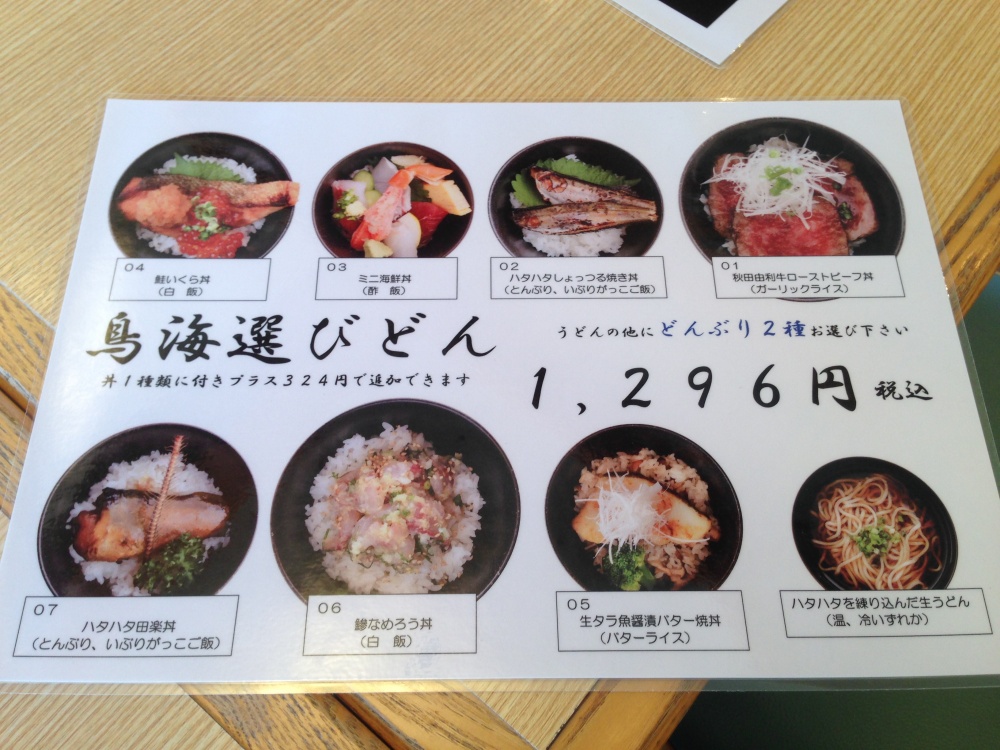 04
鮭いくら丼
(白　飯)
03
ミニ海鮮丼
(酢　飯)
02
ハタハタしょっつる焼き丼
(とんぶり、いぶりがっこご飯)
01
秋田由利牛ローストビーフ丼
(ガーリックライス)
鳥海選びどん
丼1種類に付きプラス324円で追加できます
うどんの他にどんぶり2種お選び下さい
1,296円 税込
07
ハタハタ田楽丼
(とんぶり、いぶりがっこご飯)
06
鯵なめろう丼
(白　飯)
05
生タラ魚醤漬バター焼丼
(バターライス)
ハタハタを練り込んだ生うどん
(温、冷いずれか)